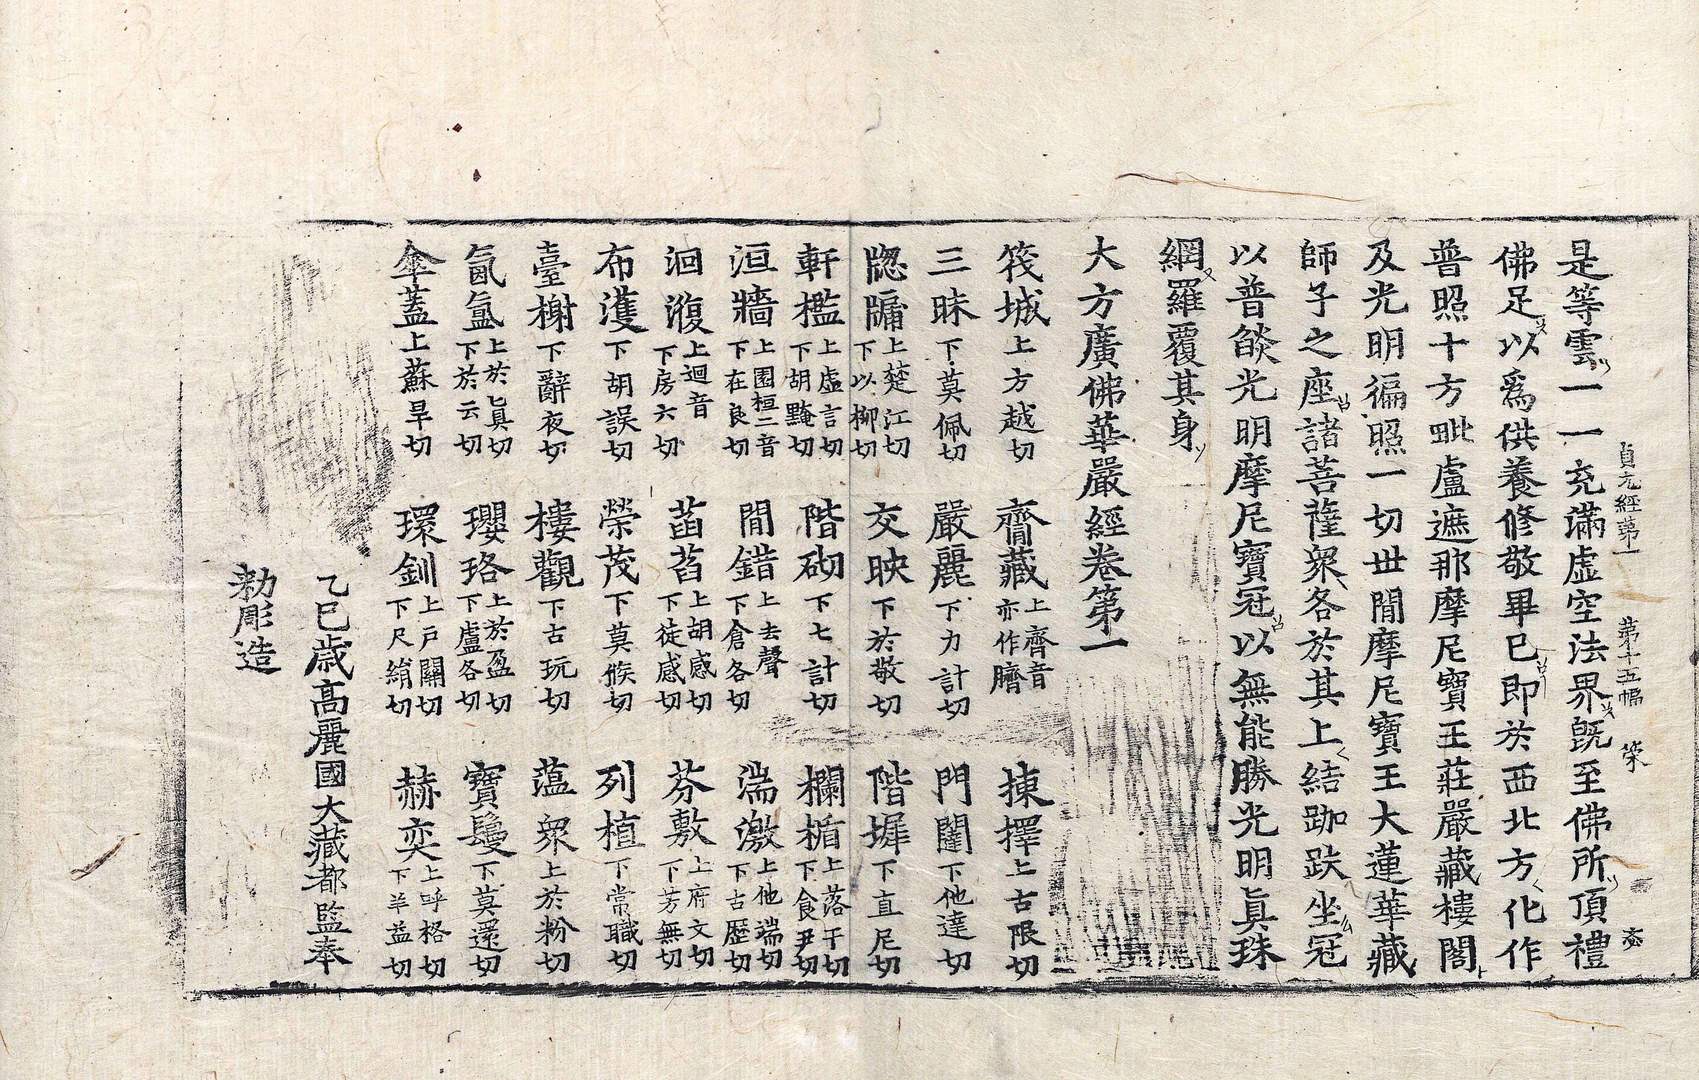 貞元經第一 第十五幅 榮
是等雲一一充滿虛空法界旣至佛所頂禮
佛足以爲供養修敬畢已卽於西北方化作
普照十方毗盧遮那摩尼寶王莊嚴藏樓閣
及光明徧照一切世間摩尼寶王大蓮華藏
師子之座諸菩薩衆各於其上結跏趺坐冠
以普燄光明摩尼寶冠以無能勝光明眞珠
網羅覆其身
大方廣佛華嚴經卷第一
筏城上方越切 齎藏上齊音亦作臍 揀擇上古限切
三昧下莫佩切 嚴麗下力計切 門闥下他達切
牎牖上楚江切下以柳切 交映下於敬切 階墀下直尼切
軒檻上虛言切下胡黤切 階砌下七計切 欄楯上落干切下食尹切
洹牆上園桓二音下在良切 間錯上去聲下倉各切 湍激上他端切下古歷切
洄澓上迴音下房六切 菡萏上胡感切下徒感切 芬敷上府文切下芳無切
布濩下胡誤切 榮茂下莫候切 列植下常職切
臺榭下辭夜切 樓觀下古玩切 薀衆上於粉切
氤氳上於眞切下於云切 瓔珞上於盈切下盧各切 寶鬘下莫還切
傘蓋上蘇旱切 環釧上戶關切下尺絹切 赫奕上呼格切下羊益切
乙巳歲高麗國大藏都監奉
勅彫造